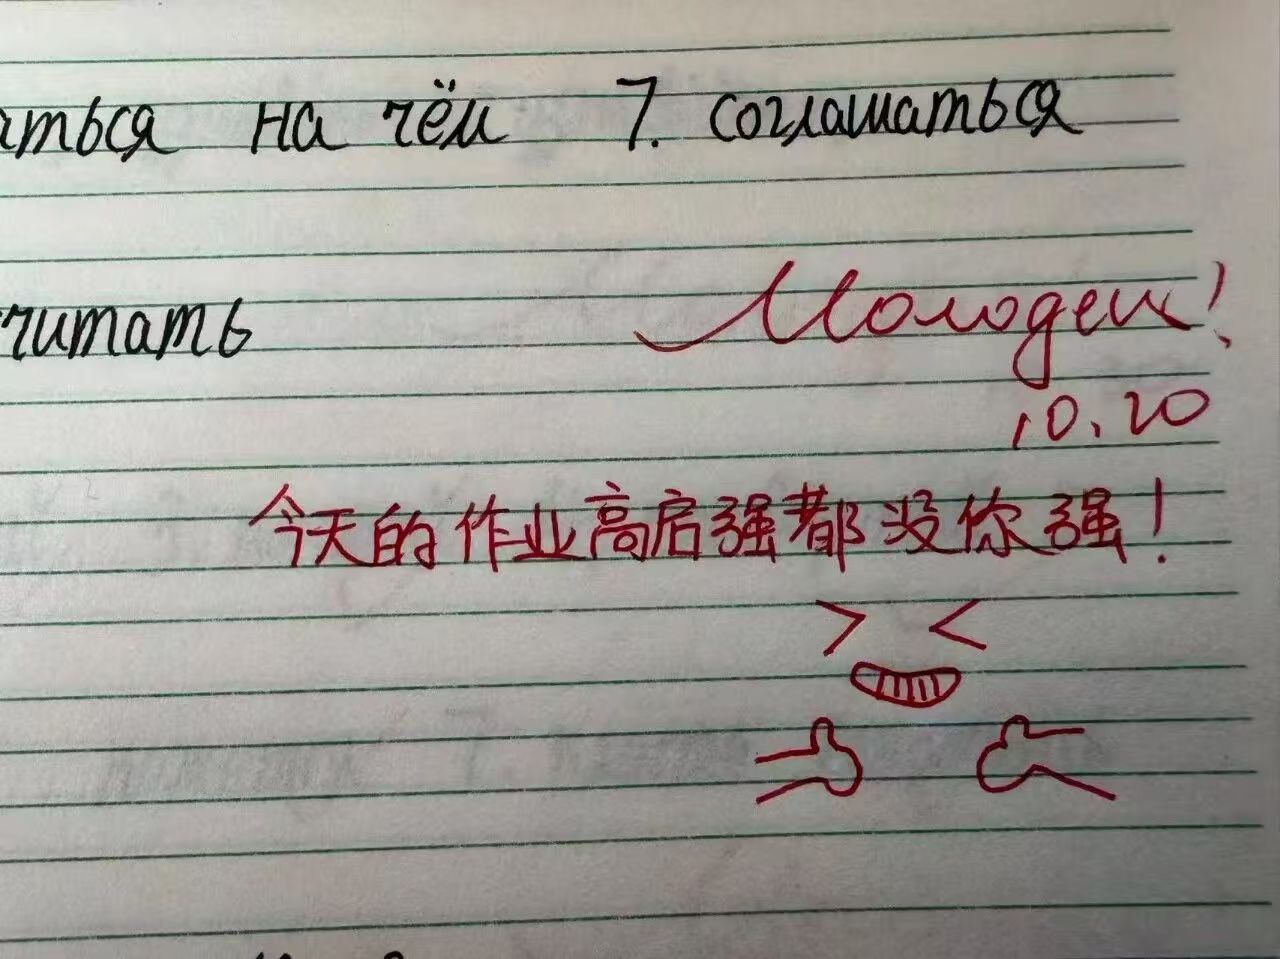 аться на чём 7. соглашаться
читать
Молодец!
10.20
今天的作业高启强都没你强!